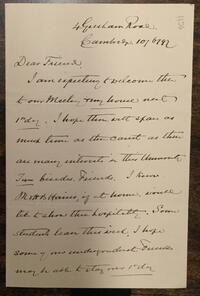 4 Gresham Road
Cambridge 10/6/97
Dear Friend
I am expecting to welcome thee
to our Meeting & my house next
1st day. I hope thou will spare as
much time as thou canst as there
are many interests in this University
Town besides Friends. I know
if at home, would
like to show thee hospitality. Some
students leave this week, I hope
some of our undergraduate Friends
may be able to stay over 1st day